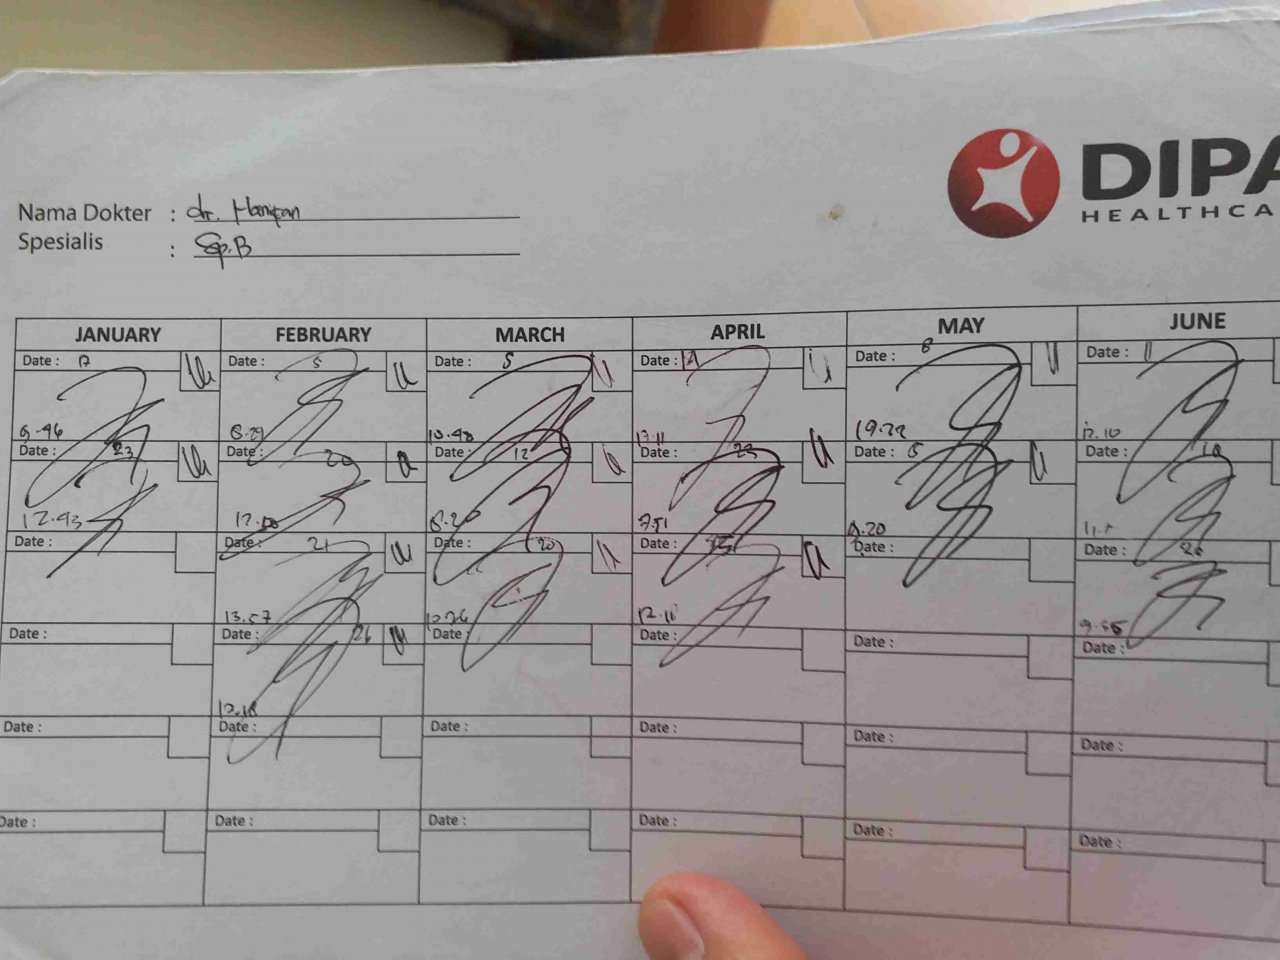 DIPA
HEALTHCA
Nama Dokter : dr. Hanifan
Spesialis : Sp.B
JANUARY FEBRUARY MARCH APRIL MAY JUNE
Date : 17 Date : 5 Date : 5 Date : Date : 8 Date : 11
9.46 8.29 10.48 17.11 19.22 12.10
Date : 23 Date : 20 Date : 12 Date : 23 Date : Date :
12.43 8.20 7.51 9.20
Date : Date : 21 Date : 20 Date : Date : Date : 26
13.57 10.26 12.11
Date : Date : 26 Date : Date : Date : Date :
Date : Date : Date : Date : Date : Date :
Date : Date : Date : Date : Date : Date :